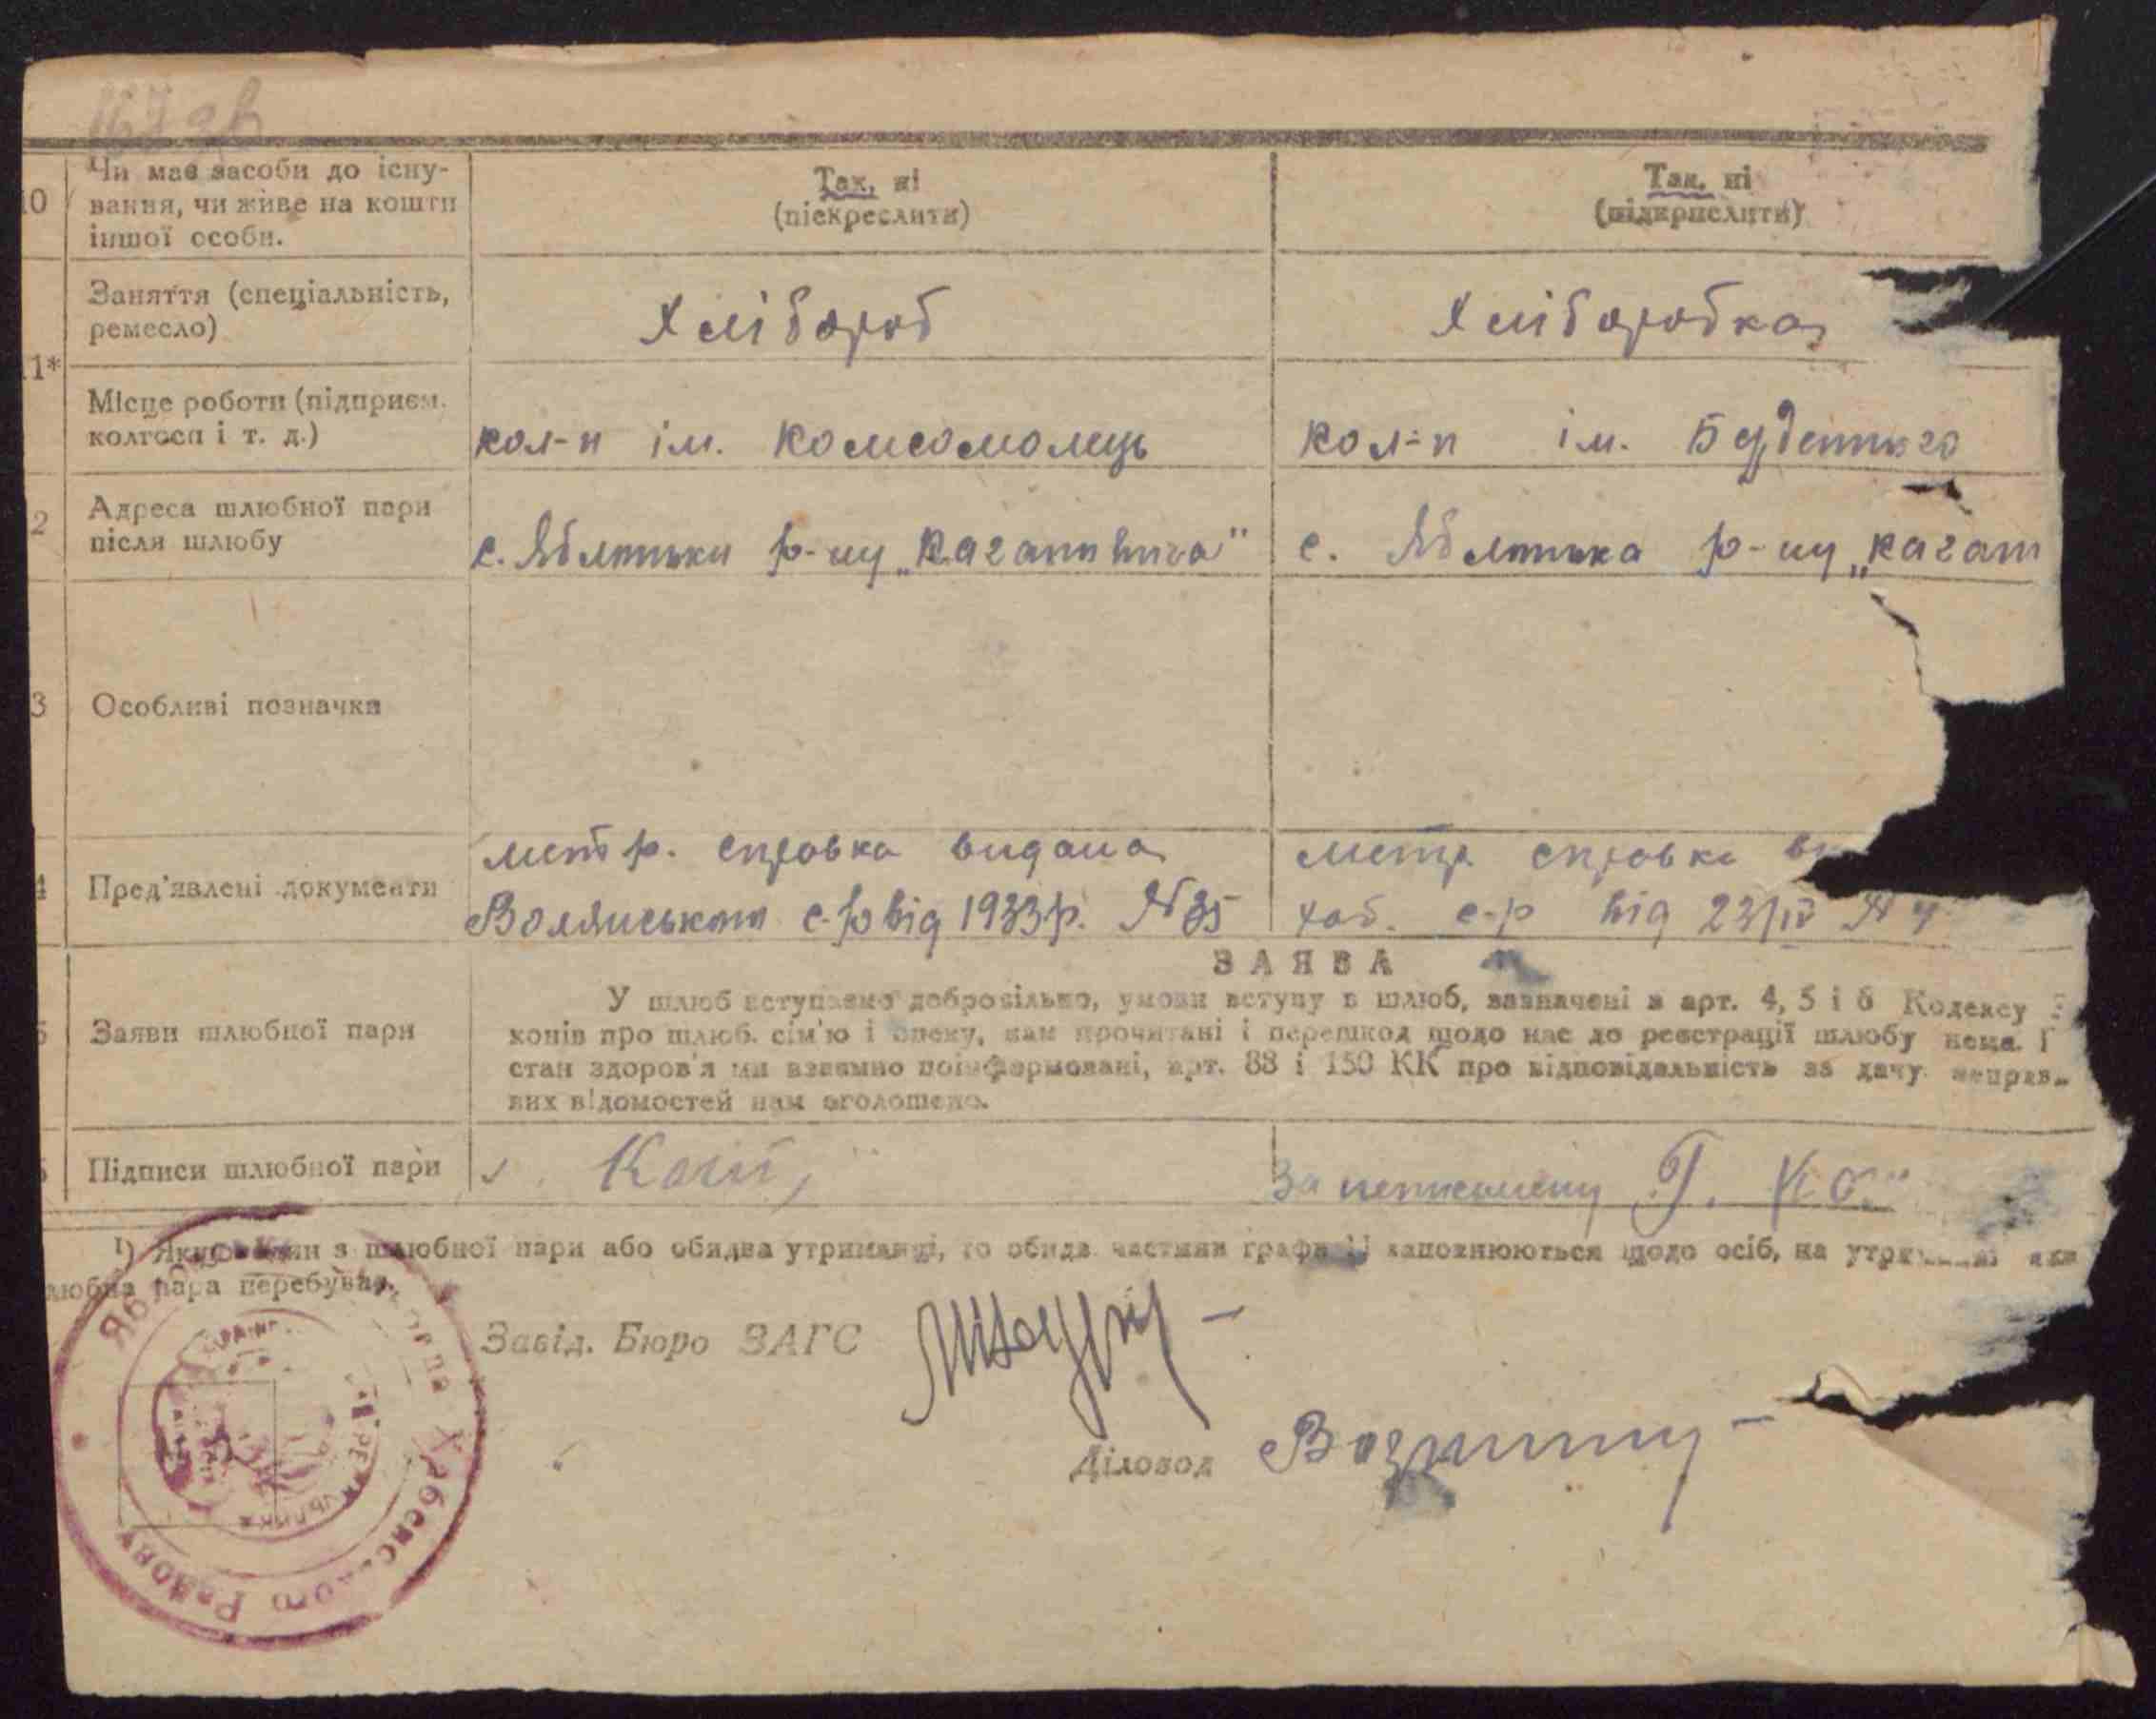 167 зв
10 Чи має засоби до існу-
вання, чи живе на кошти
іншої особи.
Так, ні
(піекреслити)
Так, ні
(підкрислити)
11*
Заняття (спеціальність,
ремесло)
Хлібороб
Хліборобка
Місце роботи (підприєм.
колгосп і т. д.)
кол-п ім. Комсомолець
кол-п ім. Будьонного
2 Адреса шлюбної пари
після шлюбу
с. Яблунька р-ну „Кагановича"
с. Яблунька р-ну „Каган
3 Особливі позначки
4 Пред'явлені документи
метр. справка видана
с-р від 1933р. №35
метр справка ви
хаб. с-р від 23/IV № 4
ЗАЯВА
5 Заяви шлюбної пари
У шлюб вступаємо добровільно, умови вступу в шлюб, зазначені в арт. 4, 5 і 6 Кодексу
конів про шлюб. сім'ю і опеку, нам прочитані і перешкод щодо нас до реєстрації шлюбу нема. П
стан здоров'я ми взаємно поінформовані, арт. 88 і 150 КК про відповідальність за дачу неправ-
вих відомостей нам оголошено.
Підписи шлюбної пари
За неписьмену
1) Якщо один з шлюбної пари або обидва утриманці, то обидв частини графи 11 заповнюються щодо осіб, на утриманні яки
любна пара перебуває.
Завід. Бюро ЗАГС
Діловод